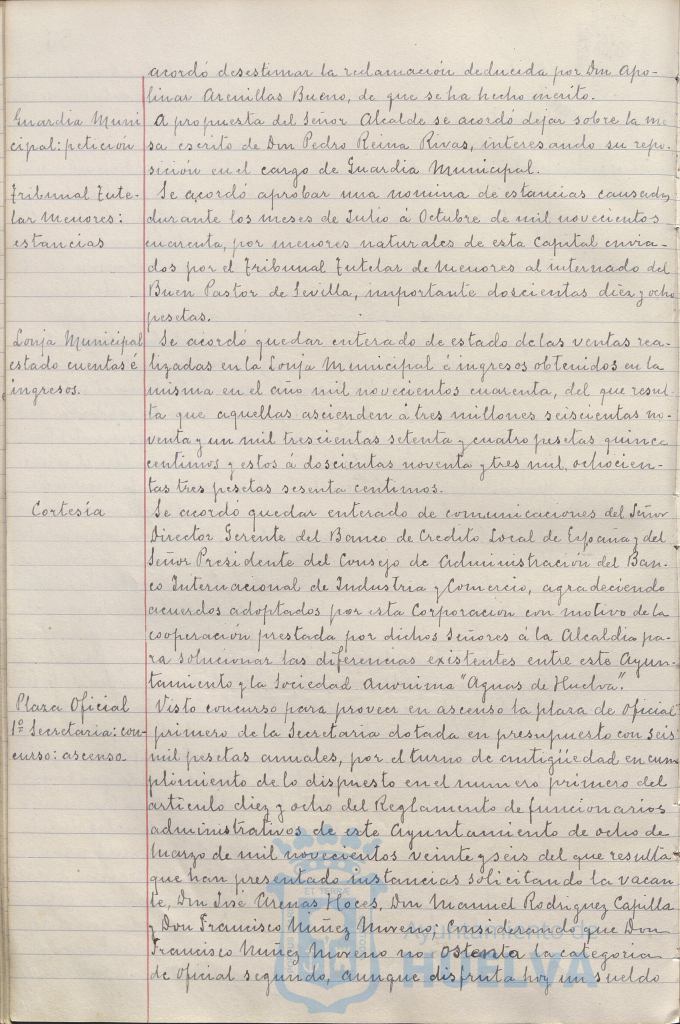 acordó desestimar la reclamación deducida por Don Apo-
linar Arenillas Bueno, de que se ha hecho mérito.
Guardia Muni
cipal: petición
A propuesta del Señor Alcalde se acordó dejar sobre la me
sa escrito de Don Pedro Reina Rivas, interesando su repo-
sición en el cargo de Guardia Municipal.
Tribunal Tute-
lar Menores:
estancias
Se acordó aprobar una nomina de estancias causadas
durante los meses de Julio á Octubre de mil novecientos
cuarenta, por menores naturales de esta Capital envia-
dos por el Tribunal Tutelar de Menores al internado del
Buen Pastor de Sevilla, importante doscientas diez y ocho
pesetas.
Lonja Municipal
estado cuentas é
ingresos.
Se acordó quedar enterado de estado de las ventas rea-
lizadas en la Lonja Municipal é ingresos obtenidos en la
misma en el año mil novecientos cuarenta, del que resul-
ta que aquellas ascienden á tres millones seiscientas no-
venta y un mil trescientas setenta y cuatro pesetas quince
centimos y estos á doscientas noventa y tres mil, ochocien-
tas tres pesetas sesenta centimos.
Cortesía
Se acordó quedar enterado de comunicaciones del Señor
Director Gerente del Banco de Credito Local de España y del
Señor Presidente del Consejo de Administración del Ban-
co Internacional de Industria y Comercio, agradeciendo
acuerdos adoptados por esta Corporación con motivo de la
cooperación prestada por dichos Señores á la Alcaldía pa-
ra solucionar las diferencias existentes entre este Ayun-
tamiento y la Sociedad Anonima "Aguas de Huelva".
Plaza Oficial
1º Secretaria: con-
curso: ascenso
Visto concurso para proveer en ascenso la plaza de Oficial
primero de la Secretaria dotada en presupuesto con seis
mil pesetas anuales, por el turno de antigüedad en cum
plimiento de lo dispuesto en el numero primero del
articulo diez y ocho del Reglamento de funcionarios
administrativos de este Ayuntamiento de ocho de
Marzo de mil novecientos veinte y seis del que resulta
que han presentado instancias solicitando la vacan-
te, Don José Arenas Hoces, Don Manuel Rodriguez Capilla
y Don Francisco Nuñez Moreno; Considerando que Don
Francisco Nuñez Moreno no ostenta la categoria
de oficial segundo, aunque disfruta hoy un sueldo
Ayuntamiento de
HUELVA